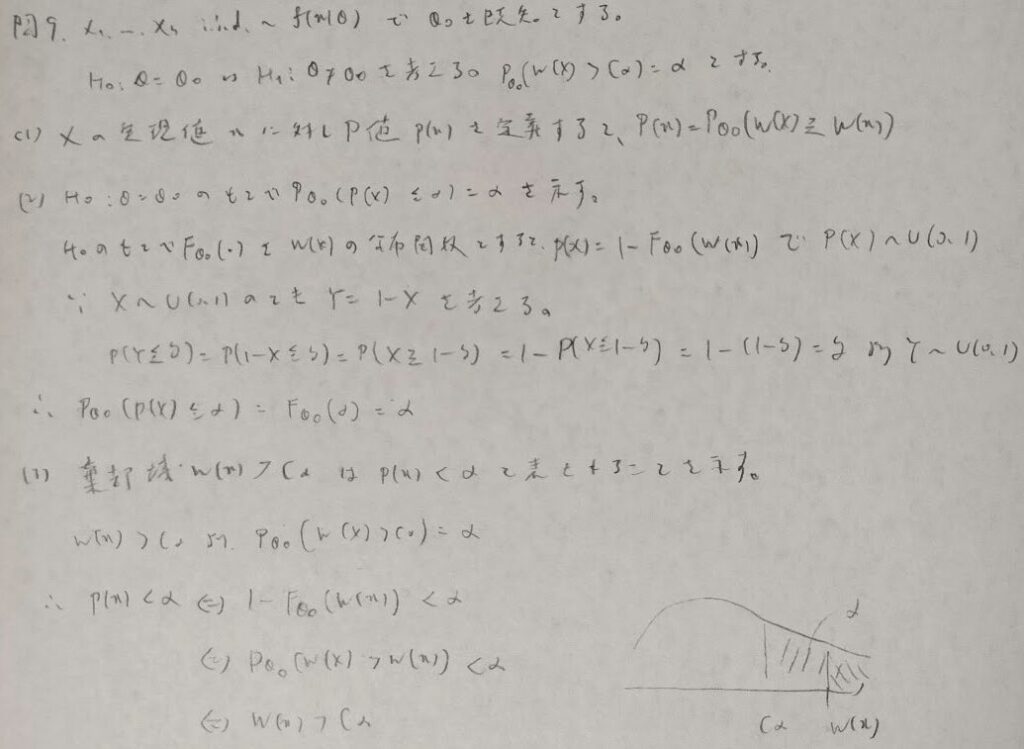 問9. X₁, …, Xₙ i.i.d. ~ f(x|θ) で θ₀を既知とする。
H₀: θ=θ₀ vs H₁: θ≠θ₀ を考える。 P_θ₀(W(X) > Cα) = α とする。
(1) Xの実現値xに対しP値 p(x) を定義すると、P(x)=P_θ₀(W(X) ≧ W(x))
(2) H₀:θ=θ₀ のもとで P_θ₀(P(X) ≤ α) = α を示す。
H₀のもとで F_θ₀(·) を W(X) の分布関数とすると. p(x) = 1 - F_θ₀(W(x)) で P(X) ~ U(0,1)
∵ X ~ U(0,1) のとき Y = 1-X を考える。
P(Y≦y) = P(1-X ≦ y) = P(X ≧ 1-y) = 1 - P(X≦1-y) = 1-(1-y) = y より Y ~ U(0,1)
∴ P_θ₀(p(X) ≤ α) = F_θ₀(α) = α
(3) 棄却域 W(x) > Cα は p(x) < α と表せることを示す。
W(x) > Cα より. P_θ₀(W(X) > Cα) = α
∴ p(x) < α ⇔ 1 - F_θ₀(W(x)) < α
⇔ P_θ₀(W(X) > W(x)) < α
⇔ W(x) > Cα
α
Cα W(x)